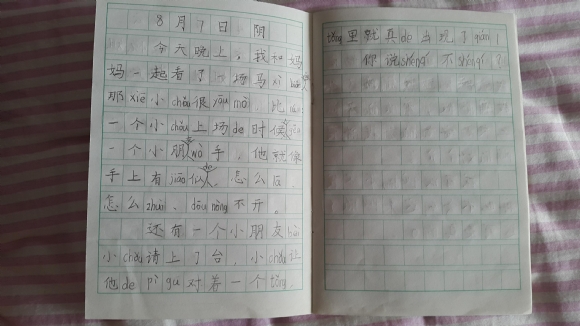 8月7日 阴
今天晚上，我和妈
妈一起看了一场马xì
那xiē小chǒu很yōu mò，比
一个小chǒu上场de时候
一个小朋wò手，他就像
手上有jiāo似de，怎么
怎么zhuài，dōu不开。
还有一个小朋友bèi
小chǒu请上了台，小chǒu让
他de pì gu对着一个tǒng
tǒng里就真de出现了
你说shén qí不shén qí？